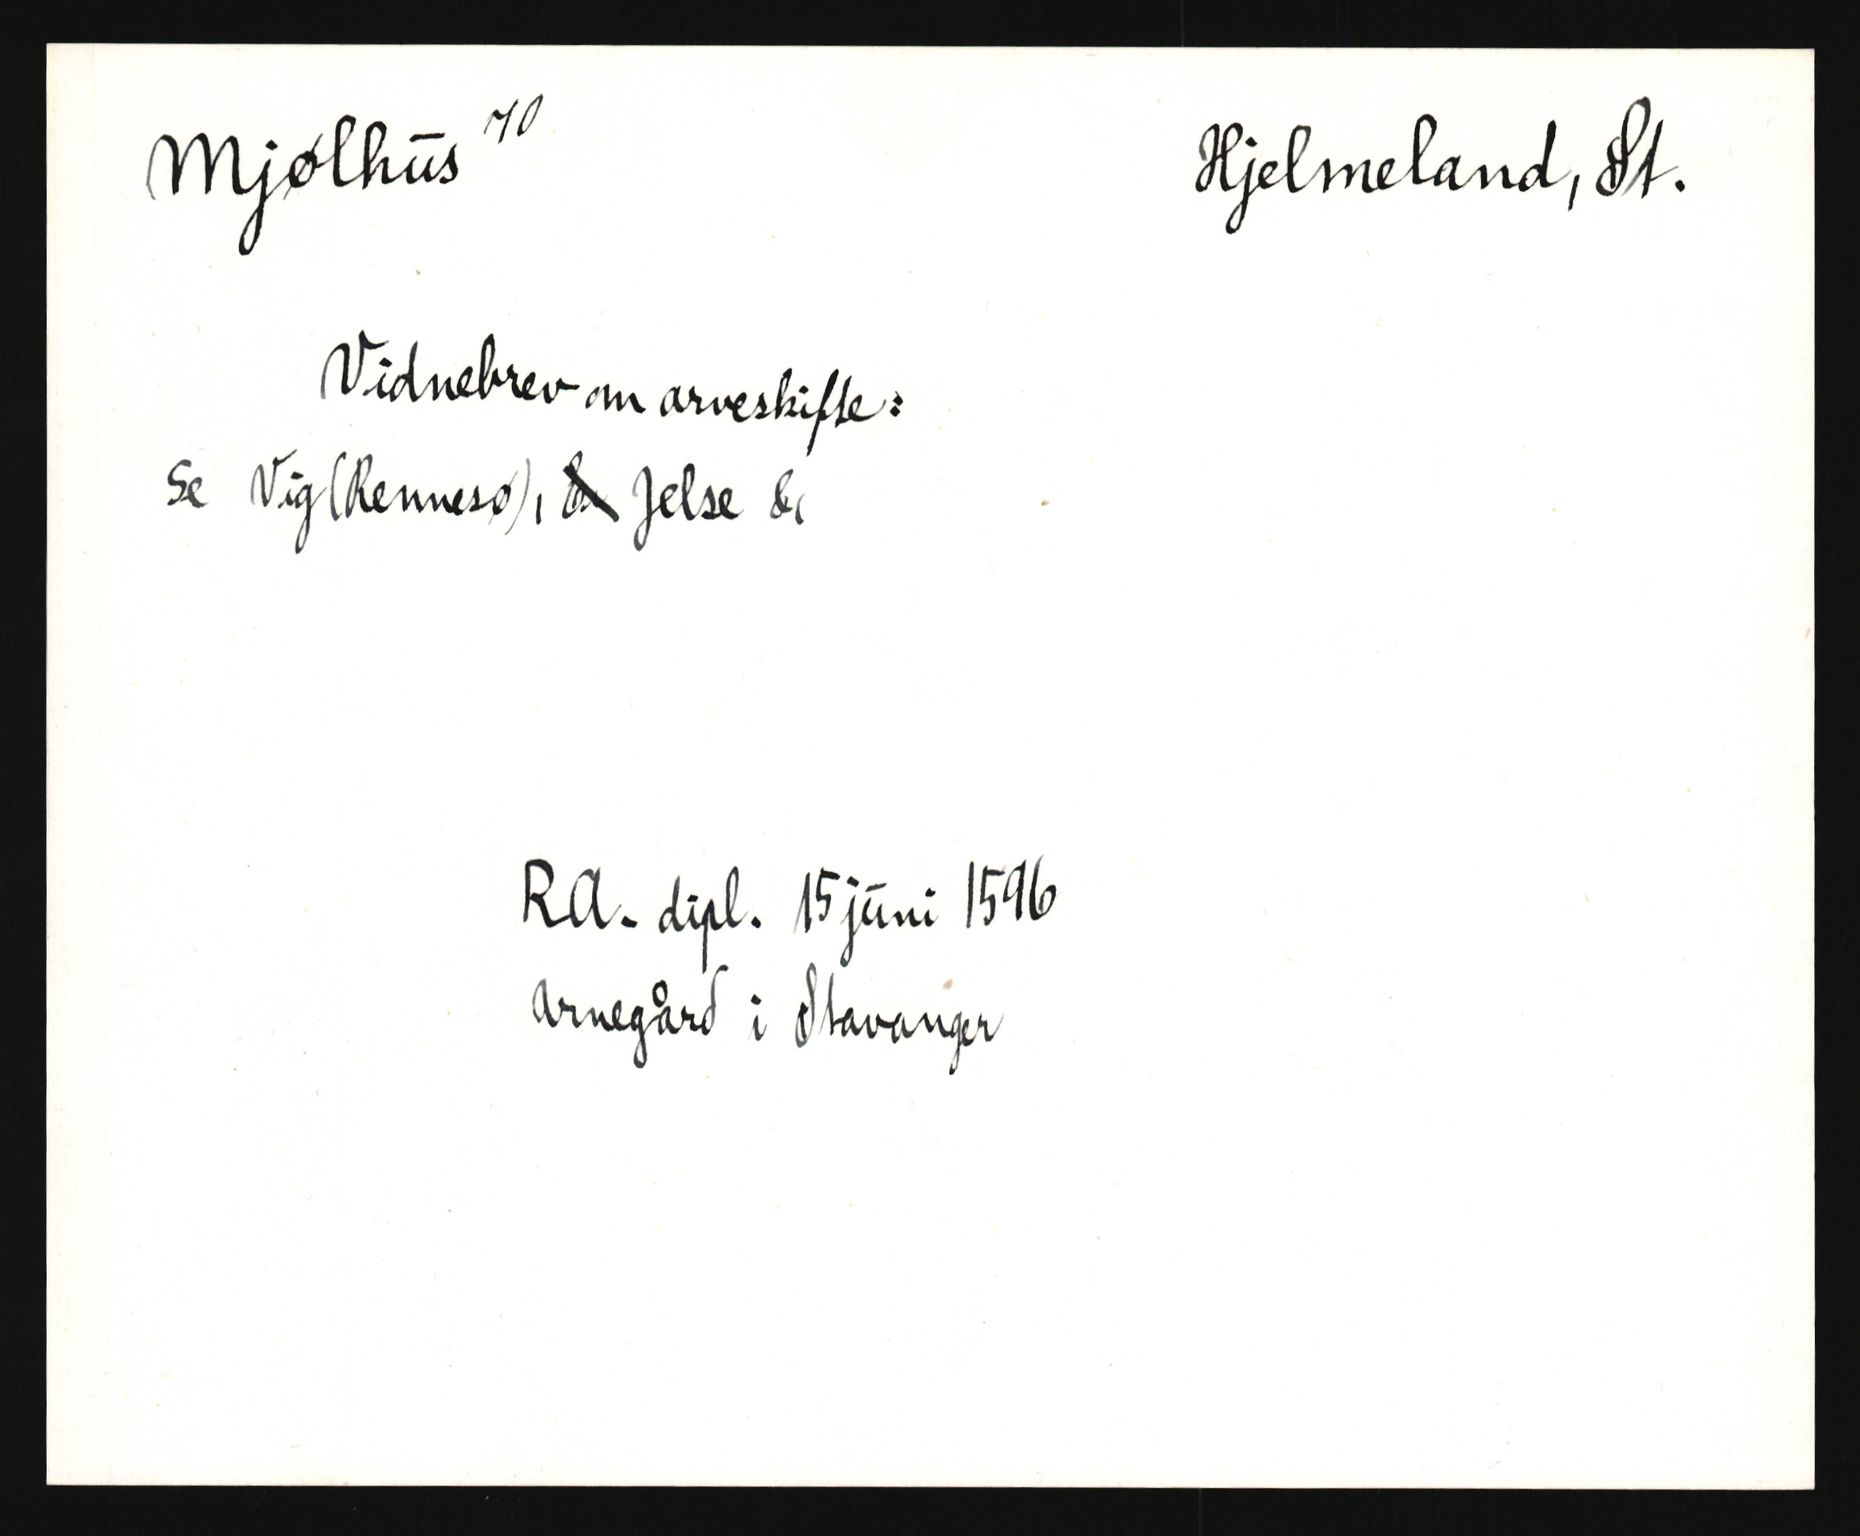 Mjølhus 70
Hjelmeland, St.
Vidnebrev om arveskifte:
Se Vig (Rennesø), Jelse &,
RA. dipl. 15 juni 1596
Arnegård i Stavanger